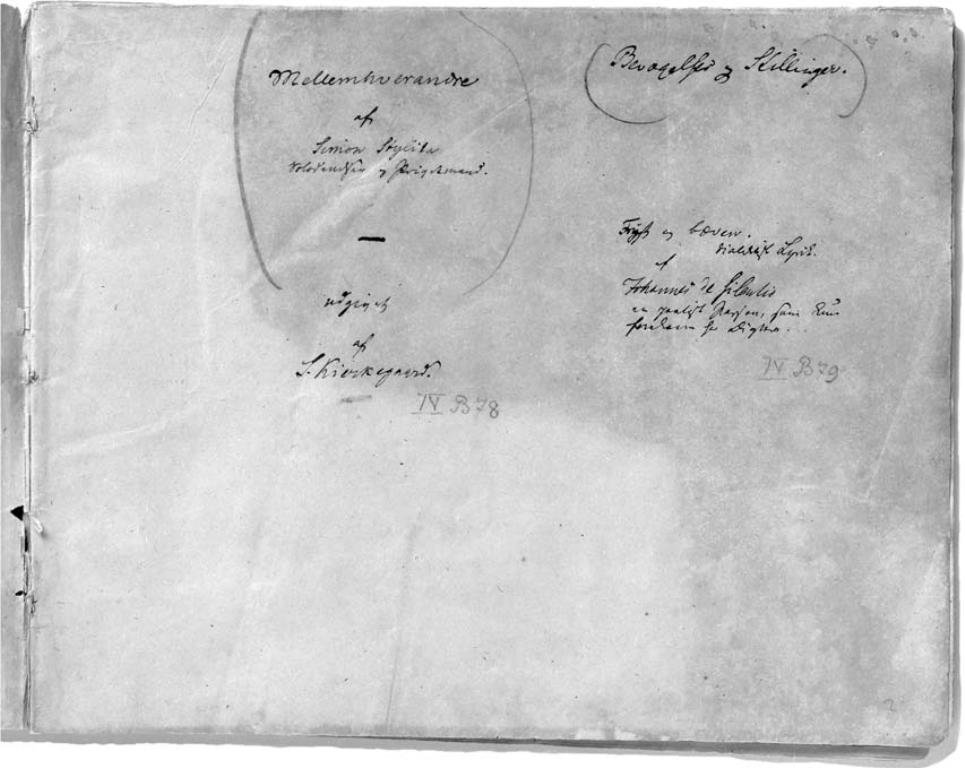 Mellemhverandre
af
Simon Stylita
Solodandser og Privatmand.
udgivet
af
S. Kierkegaard.
IV B 78
Bevægelser og Stillinger.
Frygt og Bæven.
dialektisk Lyrik.
af
Johannes de silentio
en poetisk Person, som kun
forekom hos Digtere.
IV B 79
2